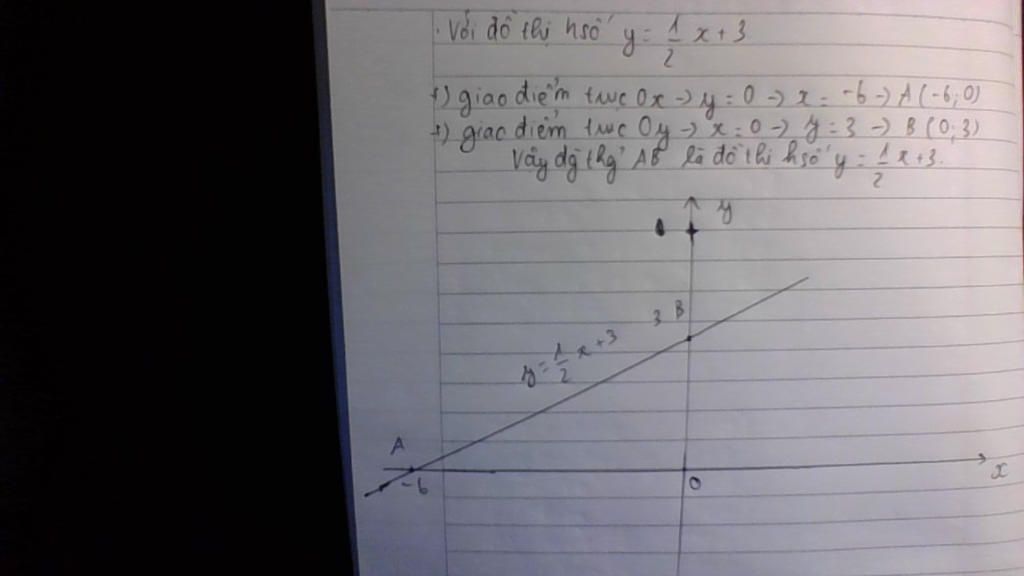 . Với đồ thị hsố y = 1/2 x + 3
+) giao điểm trục Ox → y = 0 → x = -6 → A (-6; 0)
+) giao điểm trục Oy → x = 0 → y = 3 → B (0; 3)
Vậy đg thg AB là đồ thị hsố y = 1/2 x + 3.
y
3 B
y = 1/2 x + 3
A
-6
O
x